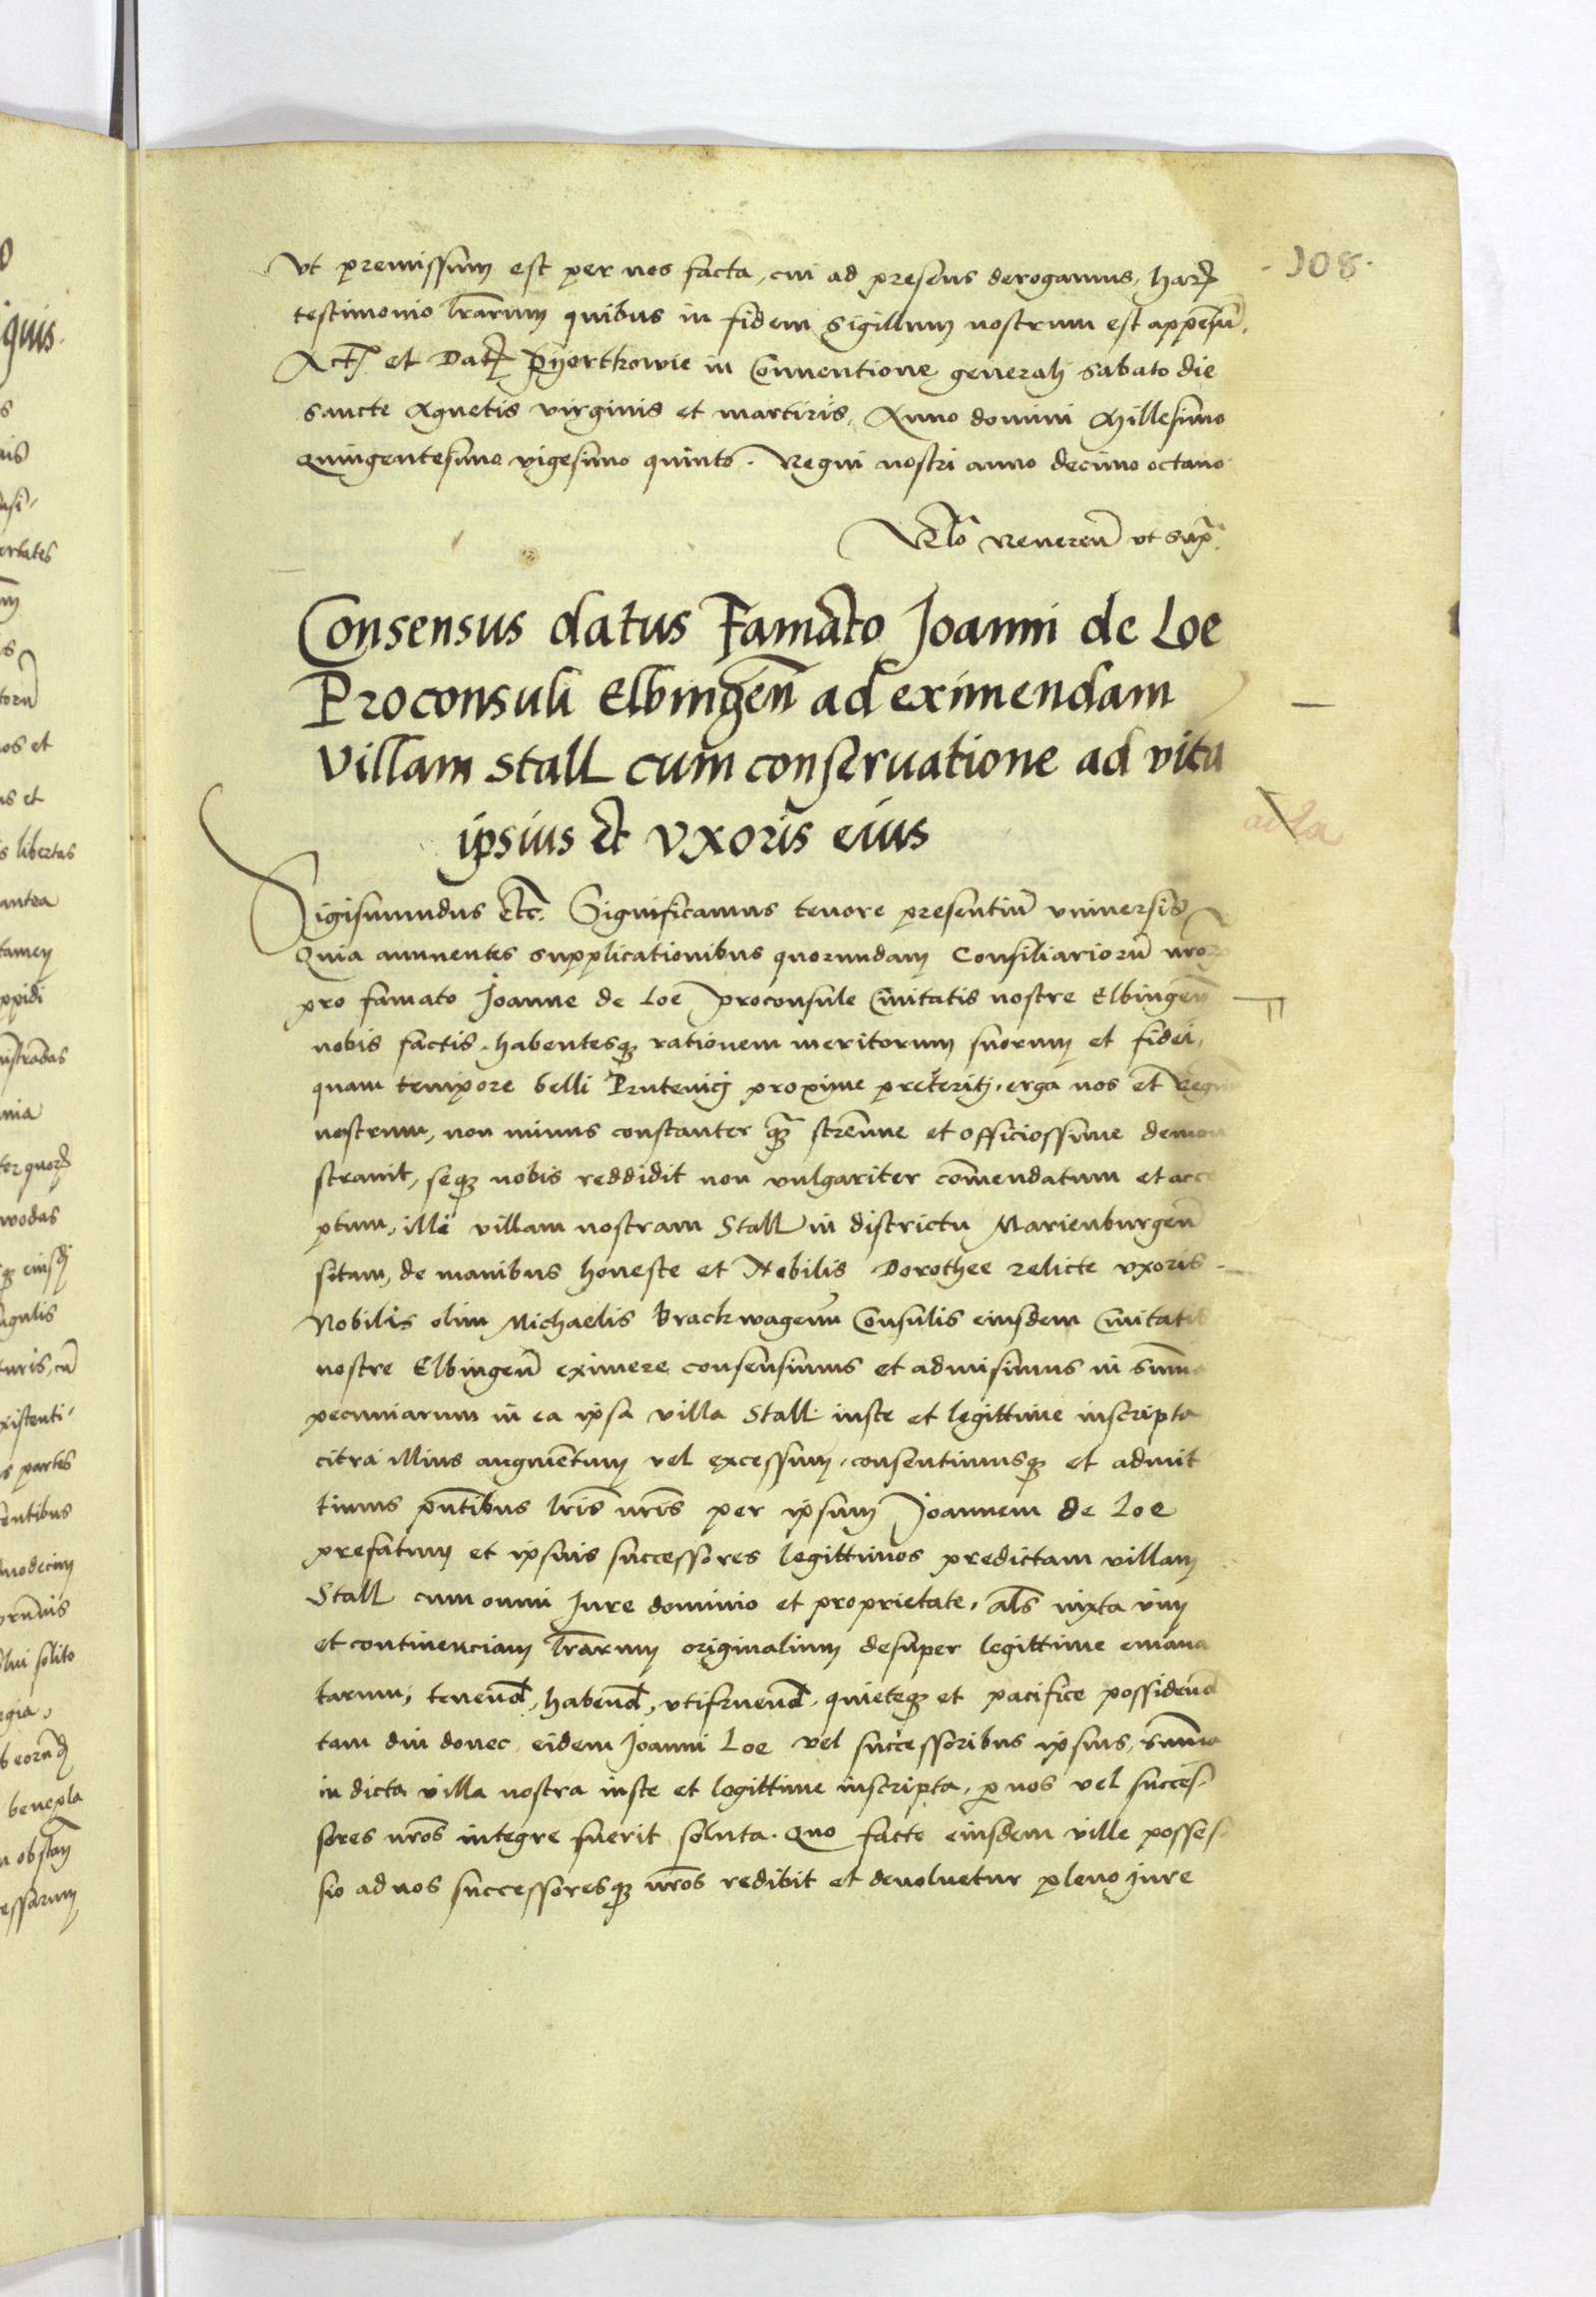 108.
Vt premissum est per nos facta, cui ad presens derogamus, harꝝ
testimonio l̃rarum quibus in fidem sigillum nostrum est appensũ.
Actꝭ et Datꝭ Pyotrkowie in Conuentione generalj sabato die
sancte Agnetis virginis et martiris, Anno domini Millesimo
Quingentesimo vigesimo quinto. Regni nostri anno decimo octauo
Rel̃o Reueren̄ vt sup̃.
Consensus datus Famato Joanni de Loe
Proconsuli Elbingen̄ ad eximendam
villam Stall cum conseruatione ad vitã
ipsius et vxoris eius
Sigismundus etc. Significamus tenore presentiũ vniuersis
Quia annuentes supplicationibus quorundam Consiliariorũ nr̃orꝝ
pro famato Joanne de Loe proconsule Ciuitatis nostre Elbingen̄
nobis factis, habentesqꝫ rationem meritorum suorum et fidei,
quam tempore belli Prutenicj proxime preteritj, erga nos et Regnũ
nostrum, non minus constanter qꝫ̃ strenue et officiossime demon
strauit, seqꝫ nobis reddidit non vulgariter com̃endatum et acce
ptum, illi villam nostram Stall in districtu Marienburgen̄
sitam, de manibus honeste et Nobilis Dorothee relicte vxoris
Nobilis olim Michaelis Brackwagenn Consulis eiusdem Ciuitatis
nostre Elbingen̄ eximere consensimus et admisimus in sum̃a
pecuniarum in ea ipsa villa Stall iuste et legittime inscripta
citra illius augmẽtum vel excessum, consentimusqꝫ et admit
timus pñtibus lr̃is nr̃is per ipsum Joannem de Loe
prefatum et ipsius successores legittimos predictam villam
Stall cum omni Jure dominio et proprietate, al̃s iuxta vim
et continenciam l̃rarum originalium desuper legittime emana
tarum, tenend̃, habend̃, vtifruend̃, quieteqꝫ et pacifice possidend̃
tam diu donec eidem Joanni Loe vel successoribus ipsius, sum̃a
in dicta villa nostra iuste et legittime inscripta, ꝑ nos vel succes-
sores nr̃os integre fuerit soluta. Quo facto eiusdem ville posses-
sio ad nos successoresqꝫ nr̃os redibit et deuoluetur pleno jure